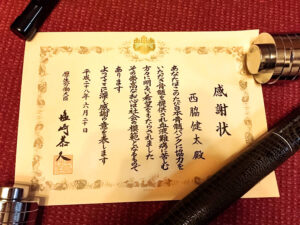 感謝状
西脇健太殿
あなたはこのたび日本骨髄バンクに協力を
いただき骨髄を提供され血液難病に苦しむ
方々に明るい希望をもたらされました
その崇高な心は社会の模範となるもので
あります
よってここに深く感謝の意を表します
平成二十八年六月二十日
厚生労働大臣
塩崎恭久